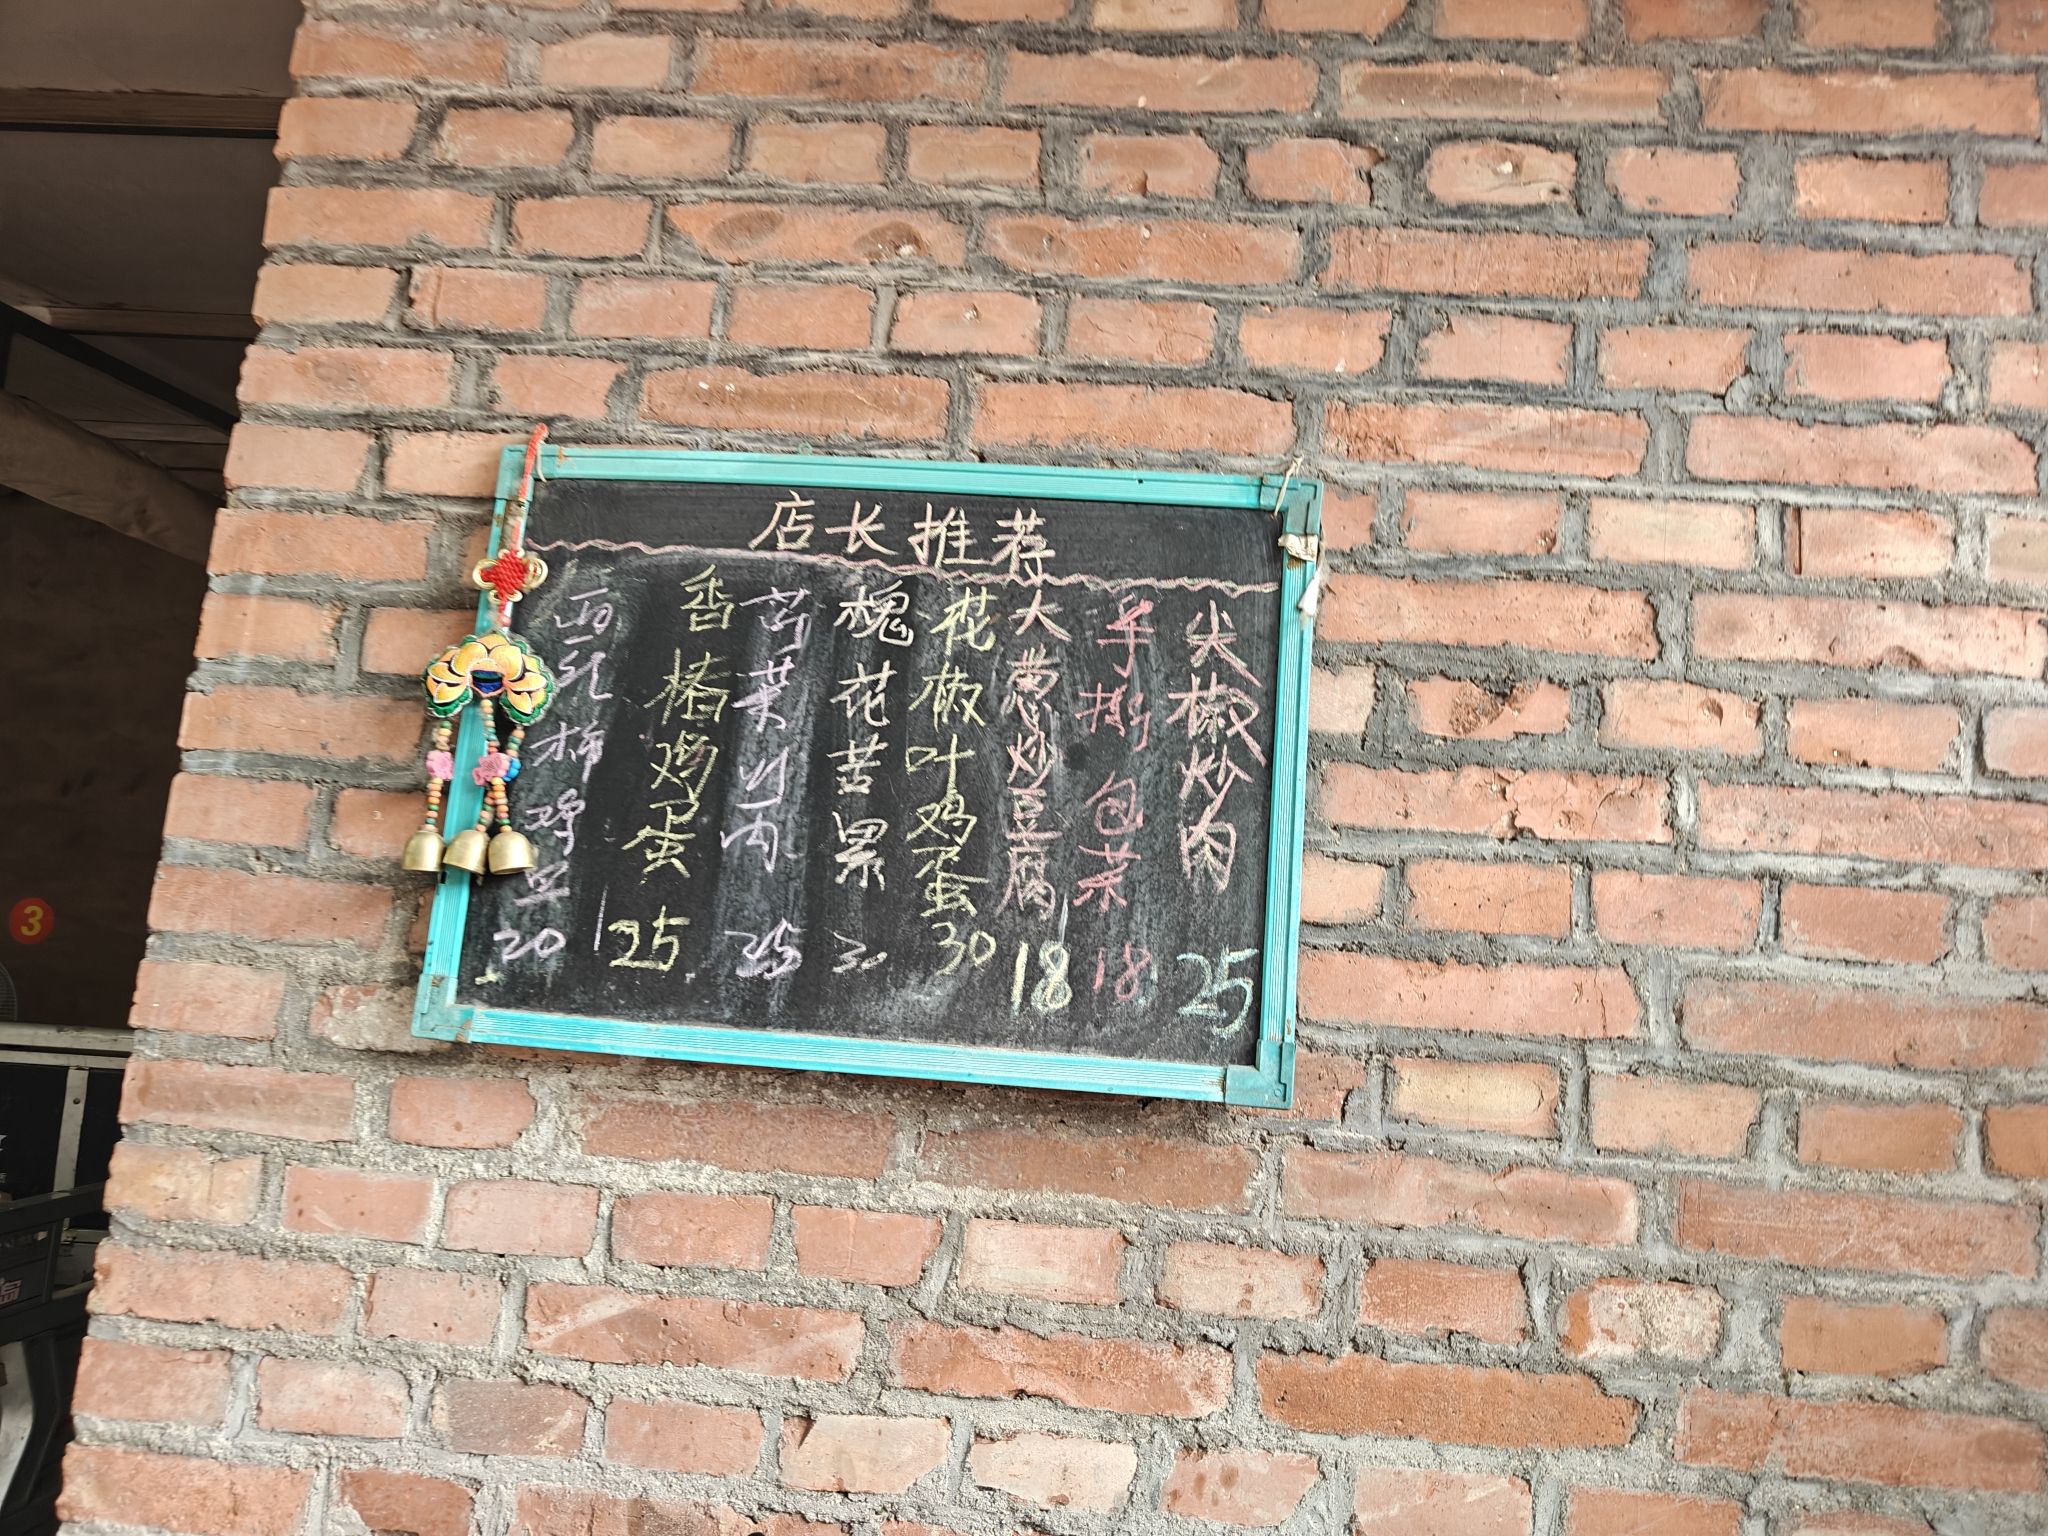 店长推荐
西红柿鸡蛋 20
香椿鸡蛋 25
芹菜炒肉 25
槐花苦累 30
花椒叶鸡蛋 30
大葱炒豆腐 18
手撕包菜 18
尖椒炒肉 25
3